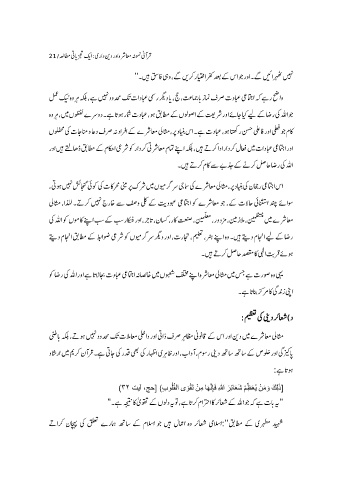 قرآنی نمونہ معاشرہ اور دین داری: ایک تجزیاتی مطالعہ / 21
نہیں ٹھہرائیں گے۔ اور جو اس کے بعد کفر اختیار کریں گے وہی فاسق ہیں۔"
واضح رہے کہ اجتماعی عبادت صرف نماز باجماعت، حج، یا دیگر رسمی عبادات تک محدود نہیں ہے، بلکہ ہر وہ نیک عمل
جو اللہ کی رضا کے لیے کیا جائے اور شریعت کے اصولوں کے مطابق ہو، عبادت شمار ہوتا ہے۔ دوسرے لفظوں میں، ہر وہ
کام جو فعلی اور فاعلی حسن رکھتا ہو، عبادت ہے۔ اس بنیاد پر، مثالی معاشرے کے افراد نہ صرف دعا و مناجات کی محفلوں
اور اجتماعی عبادات میں فعال کردار ادا کرتے ہیں، بلکہ اپنے تمام معاشرتی کردار کو شرعی احکام کے مطابق ڈھالتے ہیں اور
اللہ کی رضا حاصل کرنے کے جذبے سے کام کرتے ہیں۔
اس اجتماعی رجحان کی بنیاد پر، مثالی معاشرے کی سماجی سرگرمیوں میں شرک پر مبنی محرکات کی کوئی گنجائش نہیں ہوتی۔
سوائے چند استثنائی حالات کے، جو معاشرے کو اجتماعی عبودیت کے کلی وصف سے خارج نہیں کرتے۔ لہٰذا، مثالی
معاشرے میں منتظمین، ملازمین، مزدور، معلمین، صنعت کار، کسان، تاجر، اور فنکار سب کے سب اپنے کاموں کو اللہ کی
رضا کے لیے انجام دیتے ہیں۔ وہ اپنے ہنر، تعلیم، تجارت، اور دیگر سرگرمیوں کو شرعی ضوابط کے مطابق انجام دیتے
ہوئے قربت الٰہی کا مقصد حاصل کرتے ہیں۔
یہی وہ صورت ہے جس میں مثالی معاشرہ اپنے مختلف شعبوں میں خالصانہ اجتماعی عبادت بجا لاتا ہے اور اللہ کی رضا کو
اپنی زندگی کا مرکز بناتا ہے۔
د) شعائر دینی کی تعظیم:
مثالی معاشرے میں دین اور اس کے قانونی مظاہر صرف ذاتی اور داخلی معاملات تک محدود نہیں ہوتے، بلکہ باطنی
پاکیزگی اور خلوص کے ساتھ ساتھ دینی رسوم، آداب، اور ظاہری اظہار کی بھی قدر کی جاتی ہے۔ قرآن کریم میں ارشاد
ہوتا ہے:
{ذَلِكَ وَمَنْ يُعَظِّمْ شَعَائِرَ اللَّهِ فَإِنَّهَا مِنْ تَقْوَى الْقُلُوبِ} [حج، آیت ۳۲]
"یہ بات ہے کہ جو اللہ کے شعائر کا احترام کرتا ہے، تو یہ دلوں کے تقویٰ کا نتیجہ ہے۔"
شہید مطہری کے مطابق: "اسلامی شعائر وہ اعمال ہیں جو اسلام کے ساتھ ہمارے تعلق کی پہچان کراتے